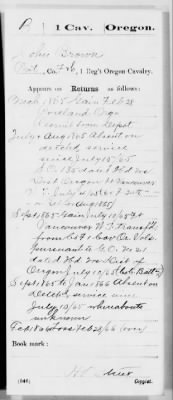 B | 1 Cav. | Oregon.
John Brown
Pvt., Co. F & G, 1 Reg't Oregon Cavalry.
Appears on Returns as follows:
March 1865 Gain Feb 28
Portland Oregon
Recruit from Depot
July & Aug 1865 Absent on
detched service
since July 15/65
S.O. 180 dated Hd Qrs
Dist Oregon Ft Vancouver
W.T. July 15/65
Aug 1865
Sept 1865 Gain July 10/65 Ft
Vancouver W.T. transf'd
from Co F 1 Cav Or. Vols
Pursuant to G.O. No 21
dated Hd Qrs Dist of
Oregon July 10/65
Sept 1865 to Jan 1866 Absent on
Detch'd service since
July 15/65 whereabouts
unknown
Feb 1866 Loss Feb 28/66
Book mark:
(546)
Copyist.